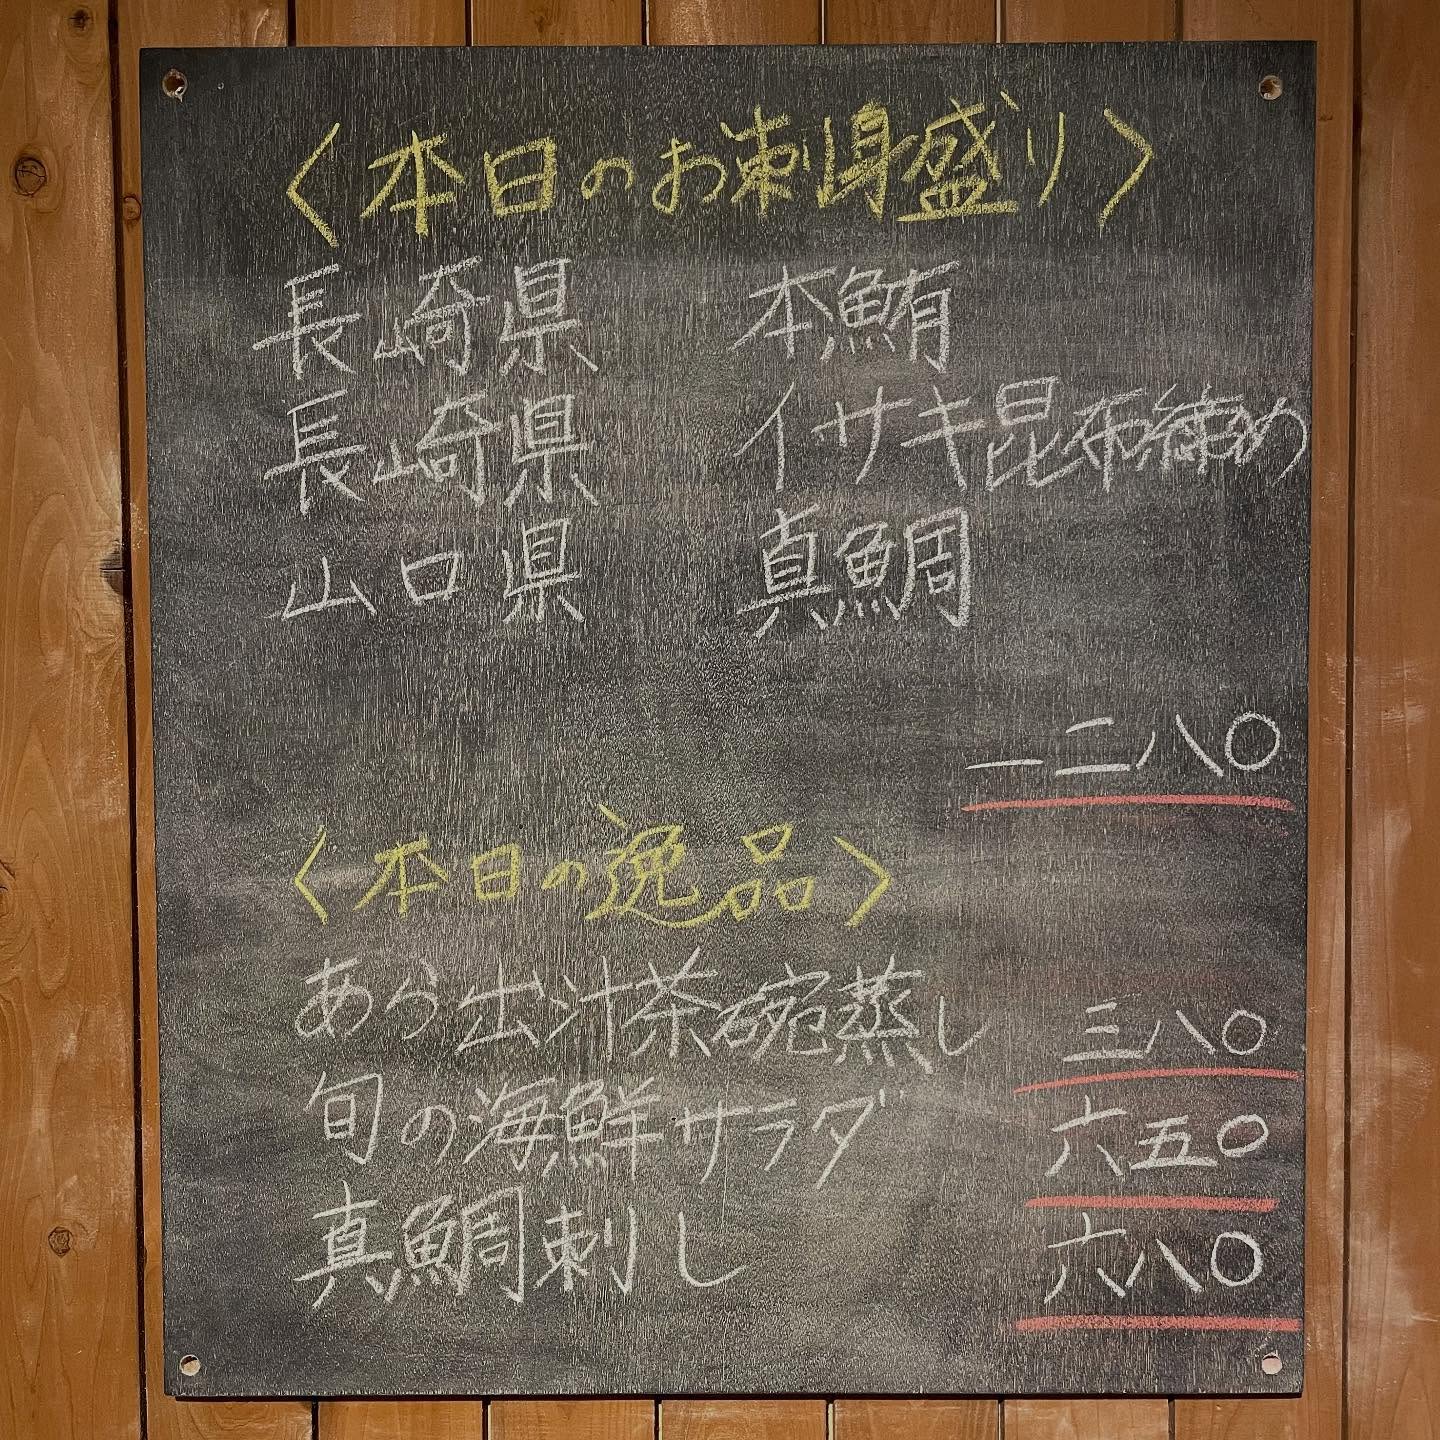 〈本日のお刺身盛り〉
長崎県 本鮪
長崎県 イサキ昆布締め
山口県 真鯛
一二八〇
〈本日の逸品〉
あら出汁茶碗蒸し 三八〇
旬の海鮮サラダ 六五〇
真鯛刺し 六八〇